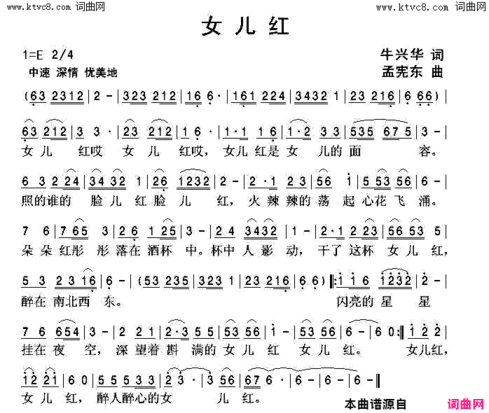 www.ktvc8.com 词曲网
www.ktvc8.com 词曲网
女儿红
1=E 2/4
牛兴华 词
中速 深情 优美地
孟宪东 曲
(63 2312 | 2 - | 323 212 | 16 6· | 161 224 | 3432 1 | 323 235 | 216 | 6 66) |
63 212 | 3 3· | 23 212 | 1·6 1 | 1·2 33 | 535 675 | 3 - |
女儿 红哎 女儿 红哎, 女儿红是 女儿的面 容。
6 3 2 24 | 34 32 1 | 26 1232 | 2 - | 2·1 23 | 216 1 | 5 53 56 | 6 - |
照的谁的 脸儿红脸 儿 红, 火辣辣的荡 起心花飞 涌。
7 6 | 7 65 3 | 2·1 235 | 2 - | 2·3 216 | 1· 2 | 3 23 56 | 5 53 |
朵朵红彤 彤落在酒杯 中。杯中人影动, 干了这杯 女儿红,
5 3 | 2 2 16 | 6 - | (235 535 | 323 123 | 216 | 6 - ) |: 116 1232 |
醉在南北西 东。 闪亮的星 星
2·1 6 | 7 6 654 | 3 - | 2·3 2 35 | 3 56 | 3 56 | 6 - | 6 0 :| 2 12 2 |
挂在夜 空, 深望着斟 满的女儿 红。 女儿红,
12 21 | 3 0 | 5 53 53 | 2 3· | 3 56 | 6 - | 6 - | 6 0 ||
女儿红, 醉人醉心的女 儿红。
本曲谱源自 词曲网